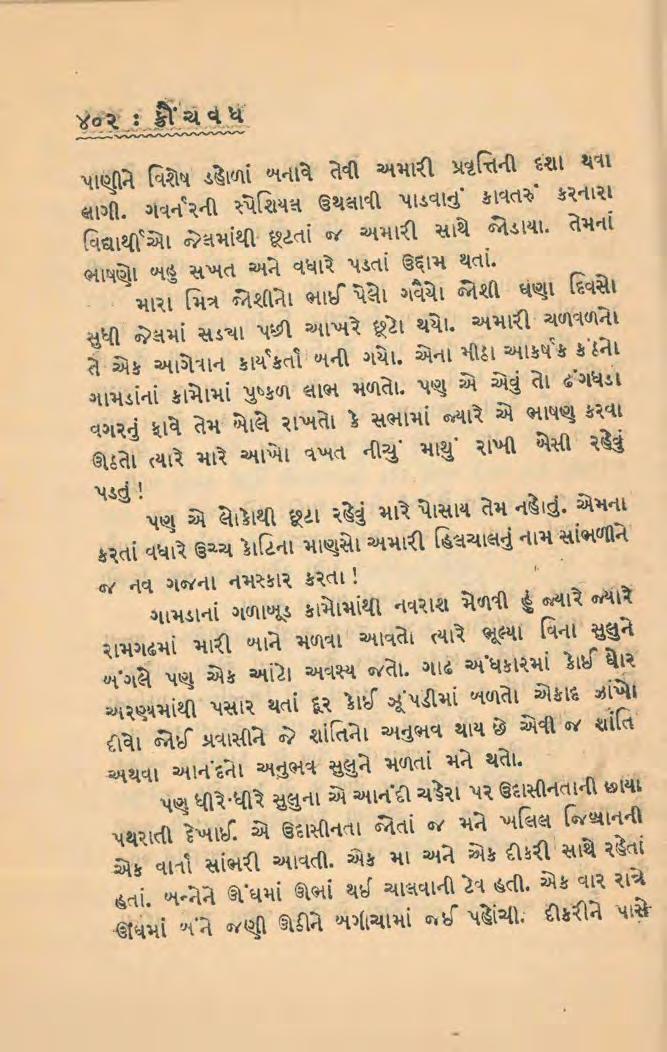 ૪૦૨ : ક્રૌંચવધ
પાણીને વિશેષ ડહોળાં બનાવે તેવી અમારી પ્રવૃત્તિની દશા થવા
લાગી. ગવર્નરની સ્પેશિયલ ઉથલાવી પાડવાનું કાવતરું કરનારા
વિદ્યાર્થીઓ જેલમાંથી છૂટતાં જ અમારી સાથે જોડાયા. તેમનાં
ભાષણો બહુ સખત અને વધારે પડતાં ઉદ્દામ થતાં.
મારા મિત્ર જોશીનો ભાઈ પેલો ગવૈયો જોશી ઘણા દિવસો
સુધી જેલમાં સડ્યા પછી આખરે છૂટો થયો. અમારી ચળવળનો
તે એક આગેવાન કાર્યકર્તા બની ગયો. એના મીઠા આકર્ષક કંઠનો
ગામડાંનાં કામોમાં પુષ્કળ લાભ મળતો. પણ એ એવું તો ઢંગધડા
વગરનું ફાવે તેમ બોલે રાખતો કે સભામાં જ્યારે એ ભાષણ કરવા
ઊઠતો ત્યારે મારે આખો વખત નીચું માથું રાખી બેસી રહેવું
પડતું !
પણ એ લોકોથી છૂટા રહેવું મારે પોસાય તેમ નહોતું. એમના
કરતાં વધારે ઉચ્ચ કોટિના માણસો અમારી હિલચાલનું નામ સાંભળીને
જ નવ ગજના નમસ્કાર કરતા !
ગામડાનાં ગળાબૂડ કામોમાંથી નવરાશ મેળવી હું જ્યારે જ્યારે
રામગઢમાં મારી બાને મળવા આવતો ત્યારે ભૂલ્યા વિના સુલુને
બંગલે પણ એક આંટો અવશ્ય જતો. ગાઢ અંધકારમાં કોઈ ઘોર
અરણ્યમાંથી પસાર થતાં દૂર કોઈ ઝૂંપડીમાં બળતો એકાદ ઝાંખો
દીવો જોઈ પ્રવાસીને જે શાંતિનો અનુભવ થાય છે એવી જ શાંતિ
અથવા આનંદનો અનુભવ સુલુને મળતાં મને થતો.
પણ ધીરે-ધીરે સુલુના એ આનંદી ચહેરા પર ઉદાસીનતાની છાયા
પથરાતી દેખાઈ. એ ઉદાસીનતા જોતાં જ મને ખલિલ જિબ્રાનની
એક વાર્તા સાંભરી આવતી. એક મા અને એક દીકરી સાથે રહેતાં
હતાં. બન્નેને ઊંઘમાં ઊભાં થઈ ચાલવાની ટેવ હતી. એક વાર રાત્રે
ઊંઘમાં બંને જણી ઊઠીને બગીચામાં જઈ પહોંચી. દીકરીને પાસે